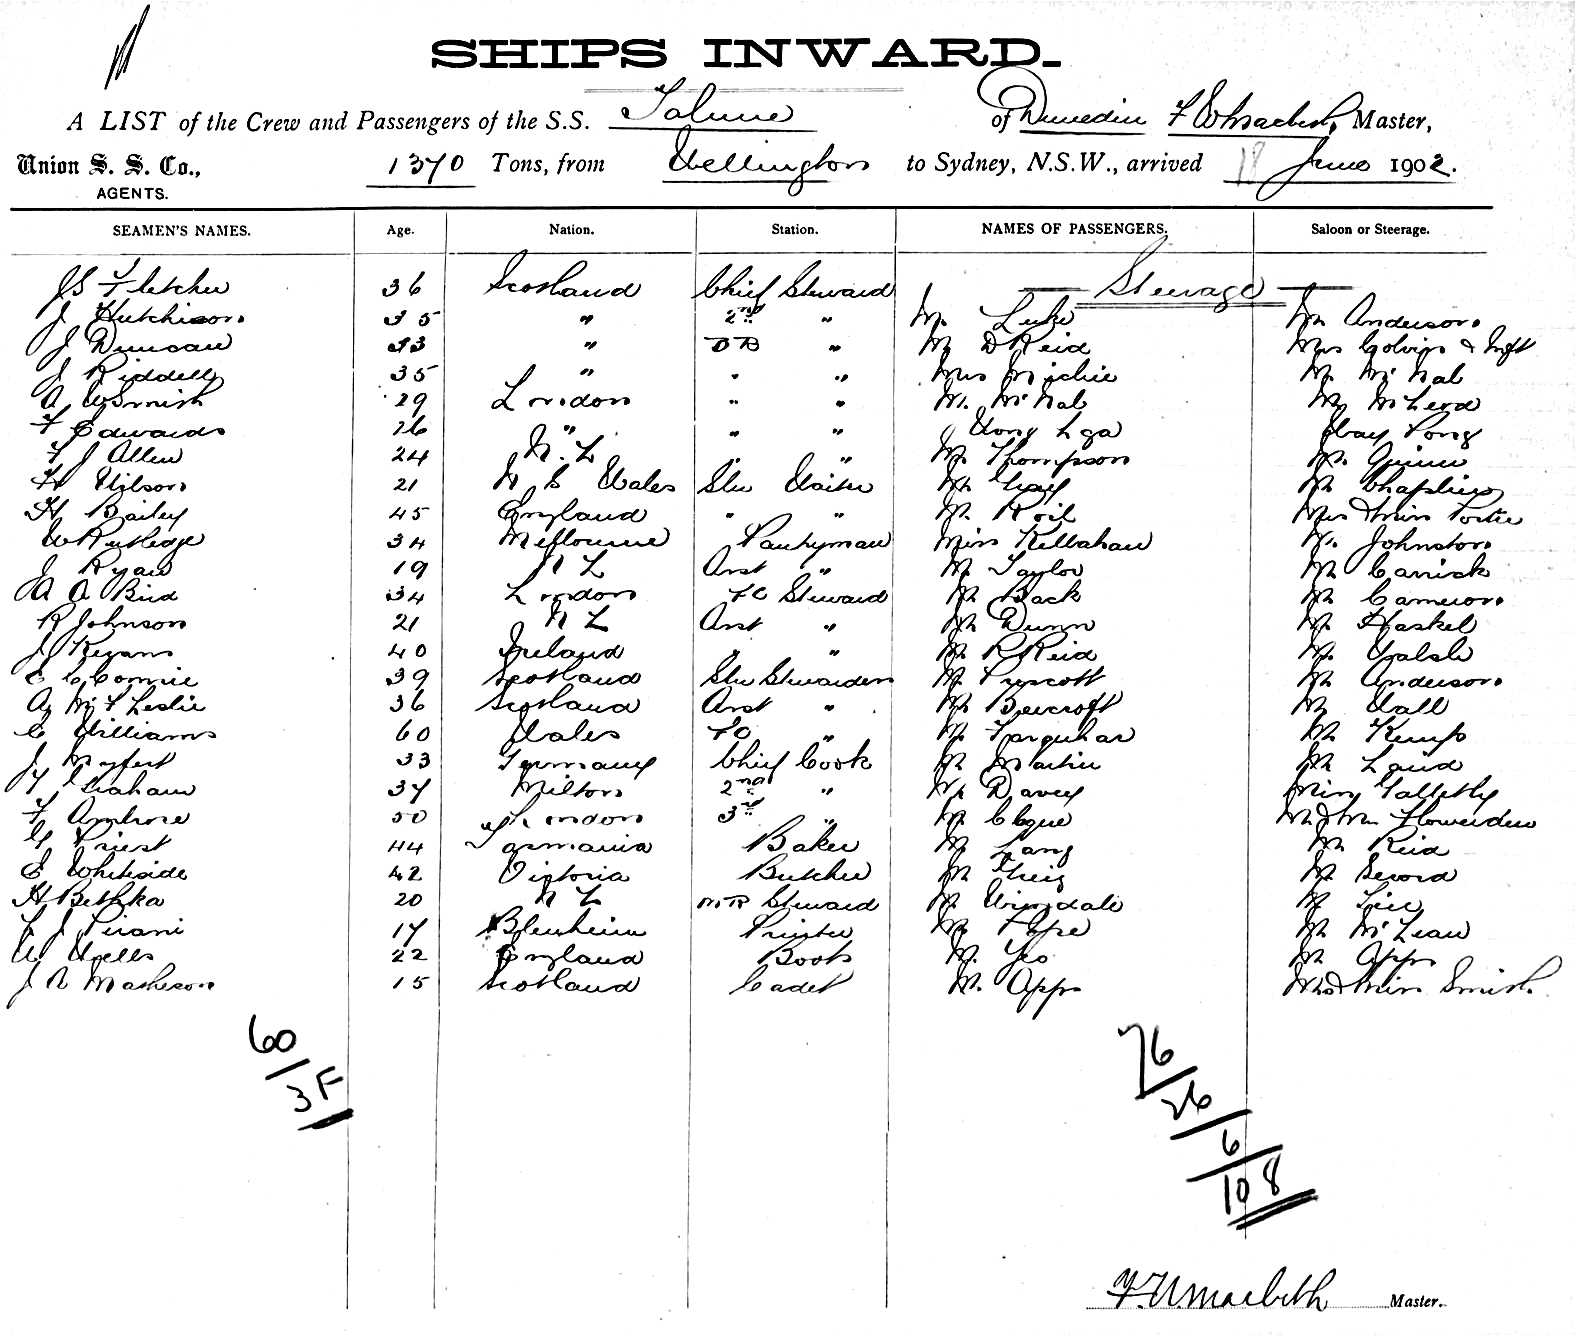 SHIPS INWARD.
A LIST of the Crew and Passengers of the S.S. Talune of Dunedin Master,
Union S. S. Co., 1370 Tons, from Wellington to Sydney, N.S.W., arrived 18 June 1902.
AGENTS.
SEAMEN'S NAMES. Age. Nation. Station. NAMES OF PASSENGERS. Saloon or Steerage.
Steerage
J S Fletcher 36 Scotland Chief Steward
J Hutchison 35 " 2nd " Mr. Luke Mr Anderson
J Duncan 33 " " Mr D Reid Mrs &
J Riddell 35 " " " Mrs Michie Mr McNab
A W Smith 29 London " " Mr. McNab Mr McLeod
F Edwards 26 " " "
F J Allen 24 N. Z " " Mr Thompson Mr. Quinn
H Wilson 21 N S Wales Stw Waiter Mr Gray Mr Chaplin
H Bailey 45 England " " Mr. Roil Mrs & Miss Porter
W Rutledge 34 Melbourne Pantryman Miss Mr. Johnston
J Ryan 19 N Z Asst " Mr Taylor Mr Carrick
A A Bird 34 London FC Steward Mr Back Mr Cameron
R Johnson 21 N Z Asst " Mr Dunn Mr Haskel
J Keyans 40 Ireland " " Mr R Reid Mr. Walsh
E C Corrie 39 Scotland Stw Stewardess Mr Prescott Mr Anderson
A McF Leslie 36 Scotland Asst " Mr Beecroft Mr Wall
C Williams 60 Wales FC " Mr Farquhar Mr Kemp
J 33 Germany Chief Cook Mr Martin Mr Laird
J Y Graham 37 Milton 2nd " Mr Davey Miss
F Ambrose 50 London 3rd " Mr Mr & Mrs Flowerdew
G Priest 44 Tasmania Baker Mr Lang Mr Reid
E Whiteside 42 Victoria Butcher Mr Greig Mr
H Bethka 20 N Z M.R Steward Mr Wingdale Mr
F J Pirani 17 Blenheim Printer Mr Pope Mr McLean
W Wells 22 England Boots Mr. Yeo Mr Apps
J A Matheson 15 Scotland Cadet Mr. Apps Mrs & Miss Smith
60/3F
76/26/6/108
Master.